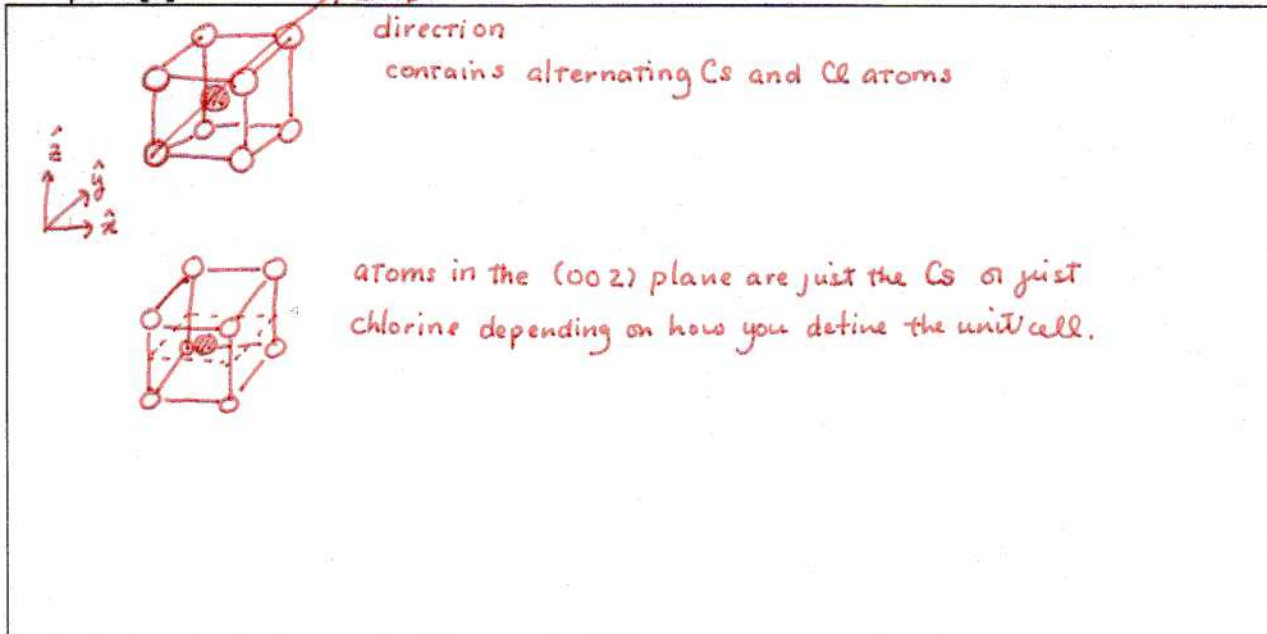 direction
contains alternating Cs and Cl atoms
ẑ
ŷ
x̂
atoms in the (002) plane are just the Cs or just
chlorine depending on how you define the unit cell.